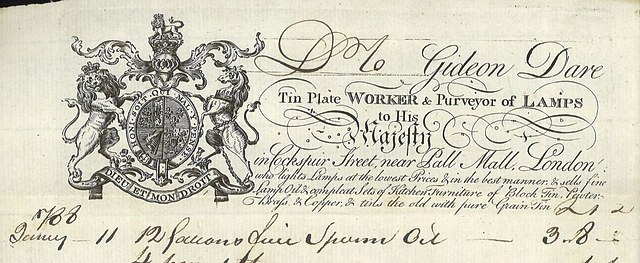 HONI·SOIT·QUI·MAL·Y·PENSE
DIEU ET MON DROIT
Dr. to Gideon Dare
Tin Plate WORKER & Purveyor of LAMPS
to His
Majesty
in Cockspur Street, near Pall Mall, London;
who lights Lamps at the lowest Prices & in the best manner, & sells fine
Lamp Oil & compleat Sets of Kitchen Furniture of Block Tin, Pewter,
Brass, & Copper, & tins the old with pure Grain Tin
1788
11 12 Gallons Sperm Oil 3.8